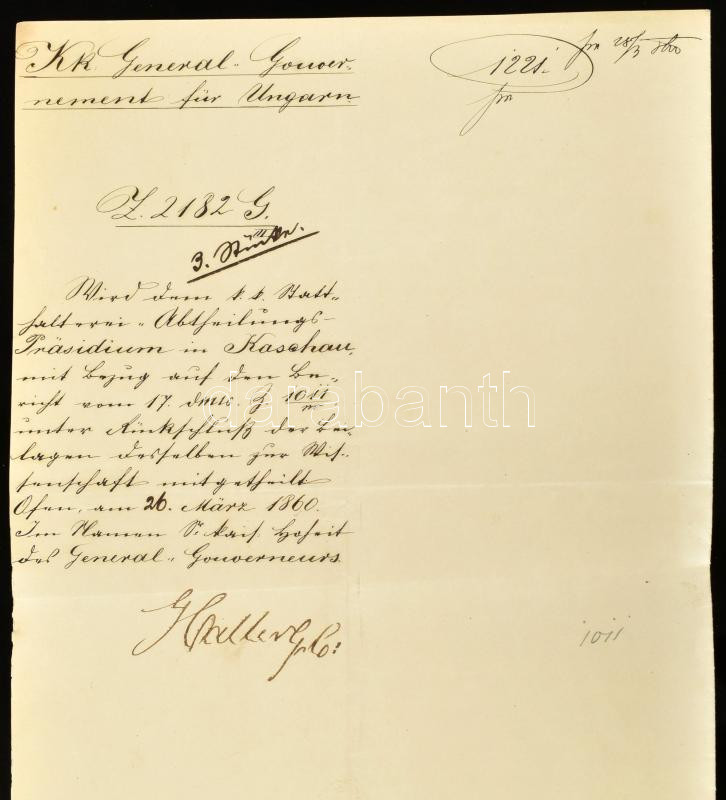 Kk General-Gouver-
nement für Ungarn
1221.
28/3 860
Z. 2182 G.
3. Stücke.
Wird dem k. k. Statt-
halterei-Abtheilungs-
Präsidium in Kaschau,
mit Bezug auf den Be-
richt vom 17. dMts. Z 1011
unter Rückschluß der Bei-
lagen desselben zur Wis-
senschaft mitgetheilt
Ofen, am 26. März 1860.
Im Namen Sr. kais. Hoheit
des General-Gouverneurs
Haller
1011
darabanth